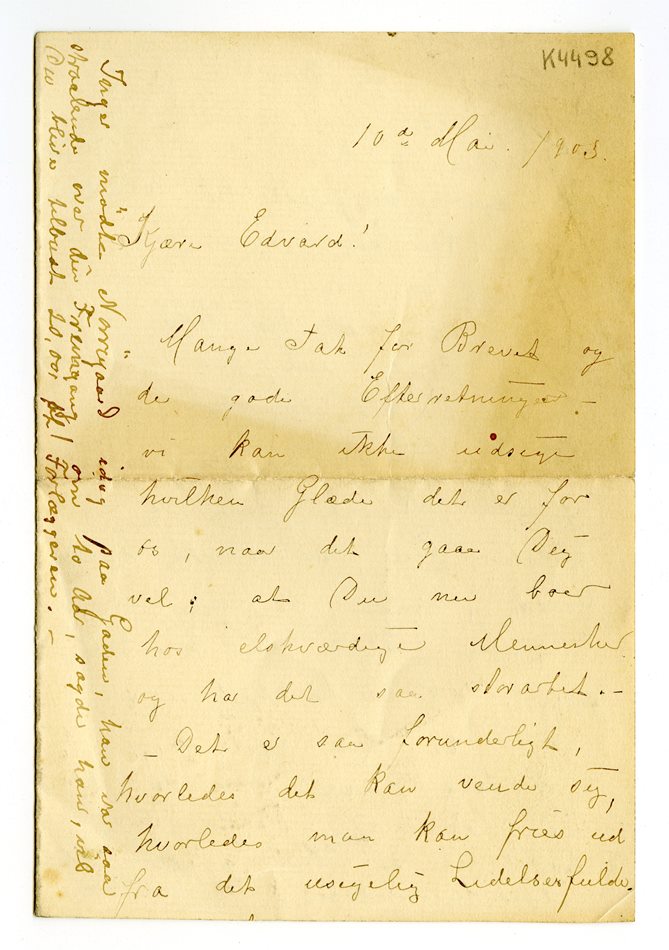 K4498
10de Mai. 1903.
Kjære Edvard!
Mange Tak for Brevet og
de gode Efterretninger –
vi kan ikke udsige
hvilken Glæde det er for
os, naar det gaar Deg
vel; at Du nu boer
hos elskværdige Mennesker
og har det saa storartet. –
– Det er saa forunderligt,
hvorledes det kan vende sig,
hvorledes man kan fries ud
fra det usigelig Lidelsesfulde.
Inger mödte Nörregaard idag paa Gaden, han var saa
straalende over din Fremgang! om to Aar, sagde han, vil
Du blive tilbudt 20,000 af Forlæggeren. –